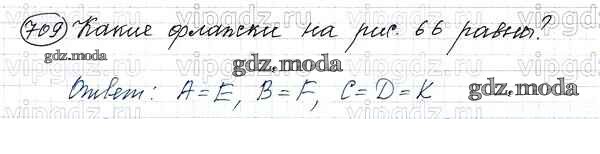 709 Какие флажки на рис. 66 равны?
gdz.moda
gdz.moda
Ответ: A = E, B = F, C = D = K
gdz.moda